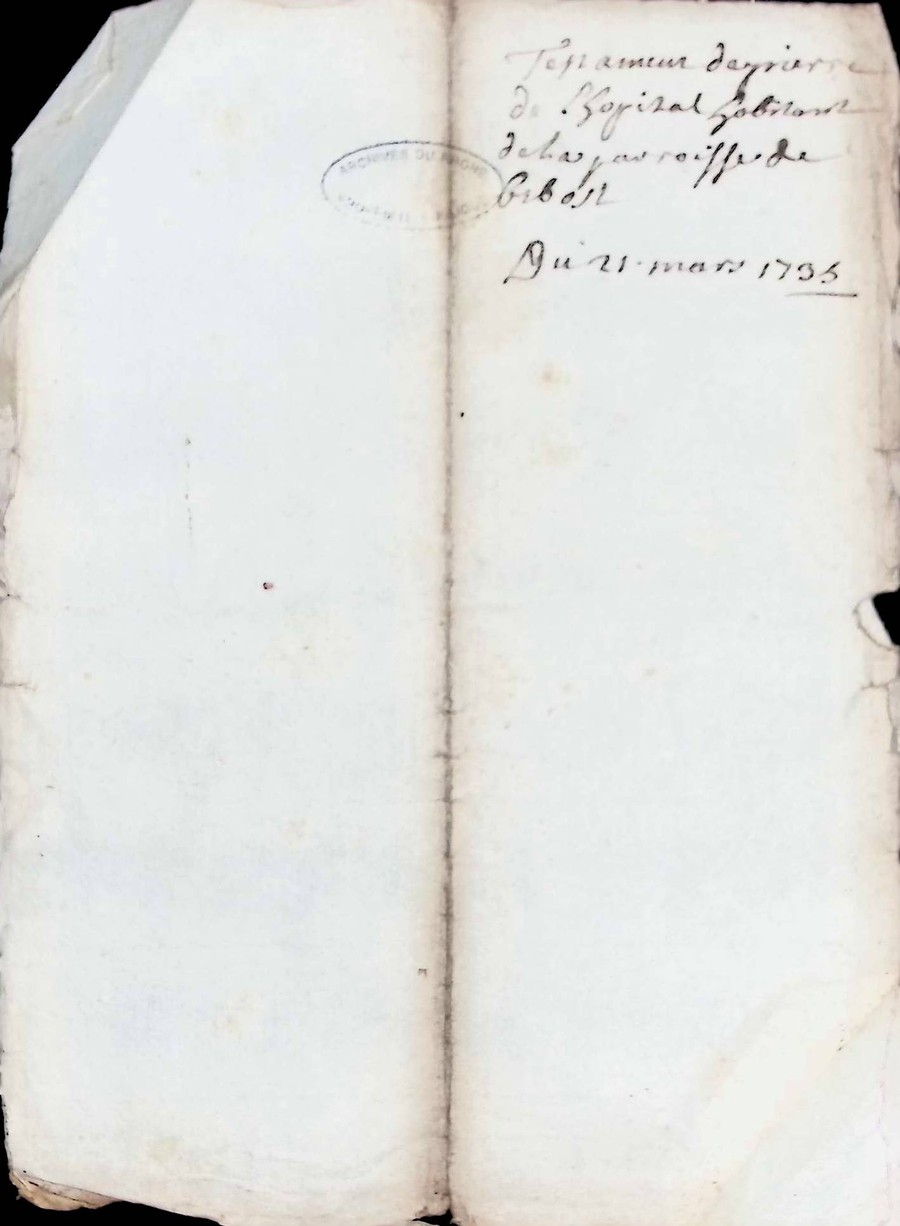 Testament de pierre
de Lhopital habitant
de la parroisse de
bibost
Du 21 mars 1735
ARCHIVES DU RHONE